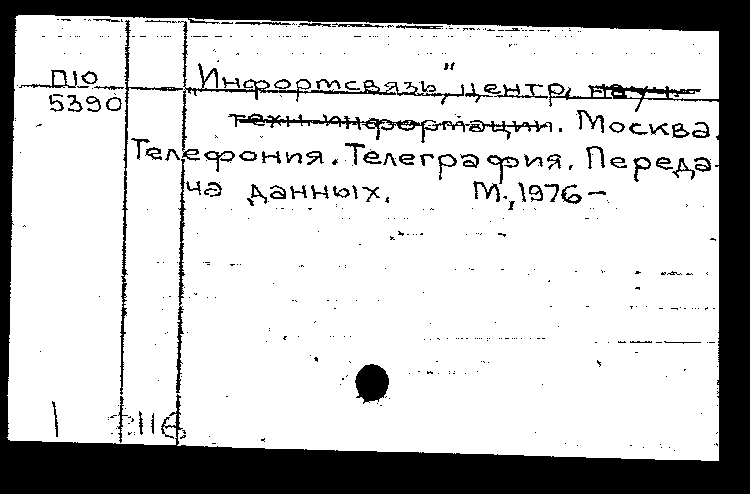 П10 „Информсвязь", центр, науч.-
5390 техн. информации. Москва.
Телефония. Телеграфия. Переда-
ча данных. М., 1976 –
1 2116